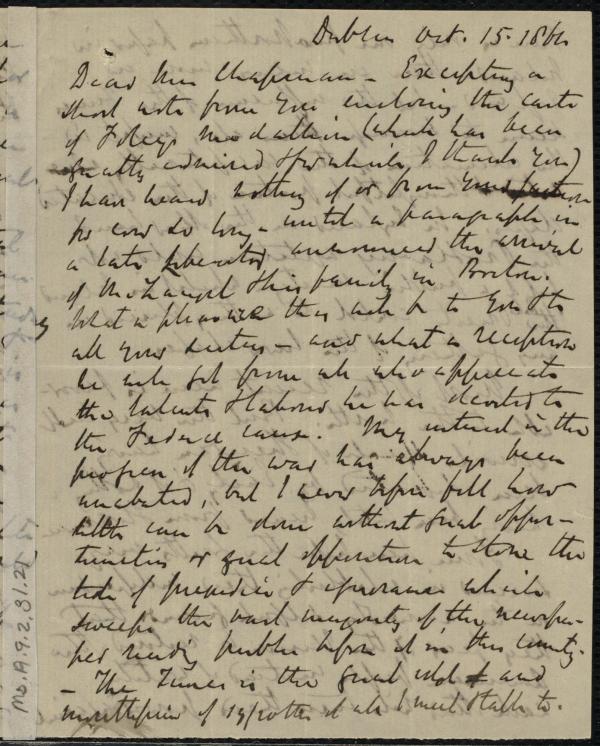 Dublin Oct. 15. 1864
Dear Mrs Chapman - Excepting a
short note from you enclosing the carte
of Foley's medallion (which has been
greatly admired & for which I thank you)
I have heard nothing of or from
for ever so long - until a paragraph in
a late Liberator announced the arrival
of & his family in Boston.
What a pleasure this will be to you & to
all your sisters - and what a reception
he will get from all who appreciate
the talents & labours he has devoted to
the Federal cause. My interest in the
progress of the war has always been
unabated, but I never before felt how
little can be done without great oppor-
tunities or great to the
tide of prejudice & ignorance which
sweeps the vast majority of the newspa-
per reading public before it in this country.
- The Times is the great idol & and
mouthpiece of 19/20ths of all I meet & talk to.
Ms. A.9.2.31.21